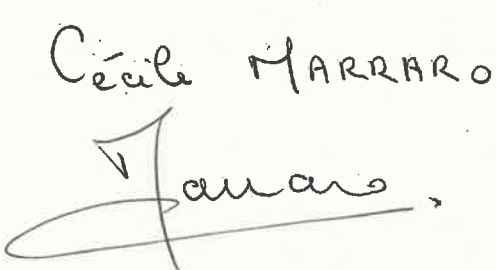 Cécile MARRARO
Marraro.